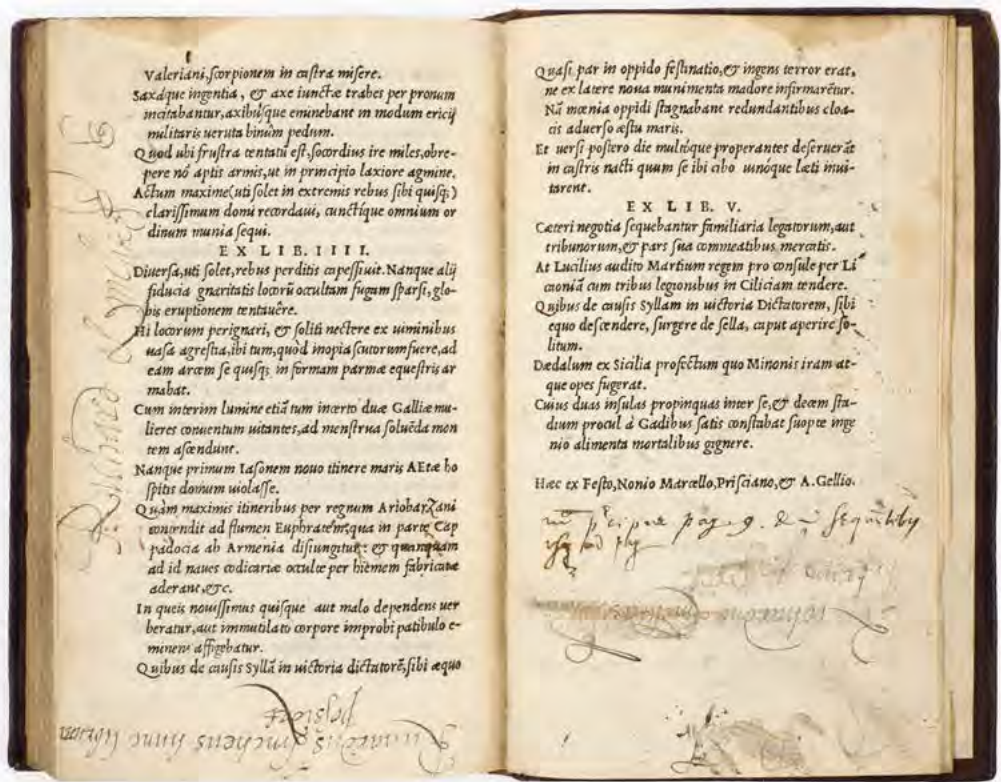 Valeriani, scorpionem in castra misere.
Saxáque ingentia, & axe iunctæ trabes per pronum
incitabantur, axibúsque eminebant in modum ericij
militaris ueruta binûm pedum.
Quod ubi frustra tentatũ est, socordius ire miles, obre-
pere nõ aptis armis, ut in principio laxiore agmine.
Actum maxime(uti solet in extremis rebus sibi quisq;)
clarissimum domi recordaui, cunctíque omnium or
dinum munia sequi.
EX LIB. IIII.
Diuersa, uti solet, rebus perditis capessiuit. Nanque alij
fiducia gnaritatis locorũ occultam fugam sparsi, glo-
bis eruptionem tentauêre.
Hi locorum perignari, & soliti nectere ex uiminibus
uasa agrestia, ibi tum, quòd inopia scutorum fuere, ad
eam arcem se quisq; in formam parmæ equestris ar
mabat.
Cum interim lumine etiã tum incerto duæ Galliæ mu-
lieres conuentum uitantes, ad menstrua soluẽda mon
tem ascendunt.
Nanque primum Iasonem nouo itinere maris AEtæ ho
spitis domum uiolasse.
Quàm maximis itineribus per regnum Ariobarzani
contendit ad flumen Euphratem, qua in parte Cap
padocia ab Armenia disiungitur: & quanquam
ad id naues codicariæ occultæ per hiemem fabricatæ
aderant, &c.
In queis nouissimus quisque aut malo dependens uer
beratur, aut immutilato corpore improbi patibulo e-
minens affigebatur.
Quibus de causis Syllã in uictoria dictatorẽ, sibi æquo
Quasi par in oppido festinatio, & ingens terror erat,
ne ex latere noua munimenta madore infirmarẽtur.
Nã mœnia oppidi stagnabant redundantibus cloa-
cis aduerso æstu maris.
Et uersi postero die multóque properantes deseruerãt
in castris nacti quum se ibi cibo uinóque læti inui-
tarent.
EX LIB. V.
Cæteri negotia sequebantur familiaria legatorum, aut
tribunorum, & pars sua commeatibus mercatis.
At Lucilius audito Martium regem pro consule per Li
caoniã cum tribus legionibus in Ciliciam tendere.
Quibus de causis Syllam in uictoria Dictatorem, sibi
equo descendere, surgere de sella, caput aperire so-
litum.
Dædalum ex Sicilia profectum quo Minonis iram at-
que opes fugerat.
Cuius duas insulas propinquas inter se, & decem sta-
dium procul à Gadibus satis constabat suopte inge
nio alimenta mortalibus gignere.
Hæc ex Festo, Nonio Marcello, Prisciano, & A. Gellio.